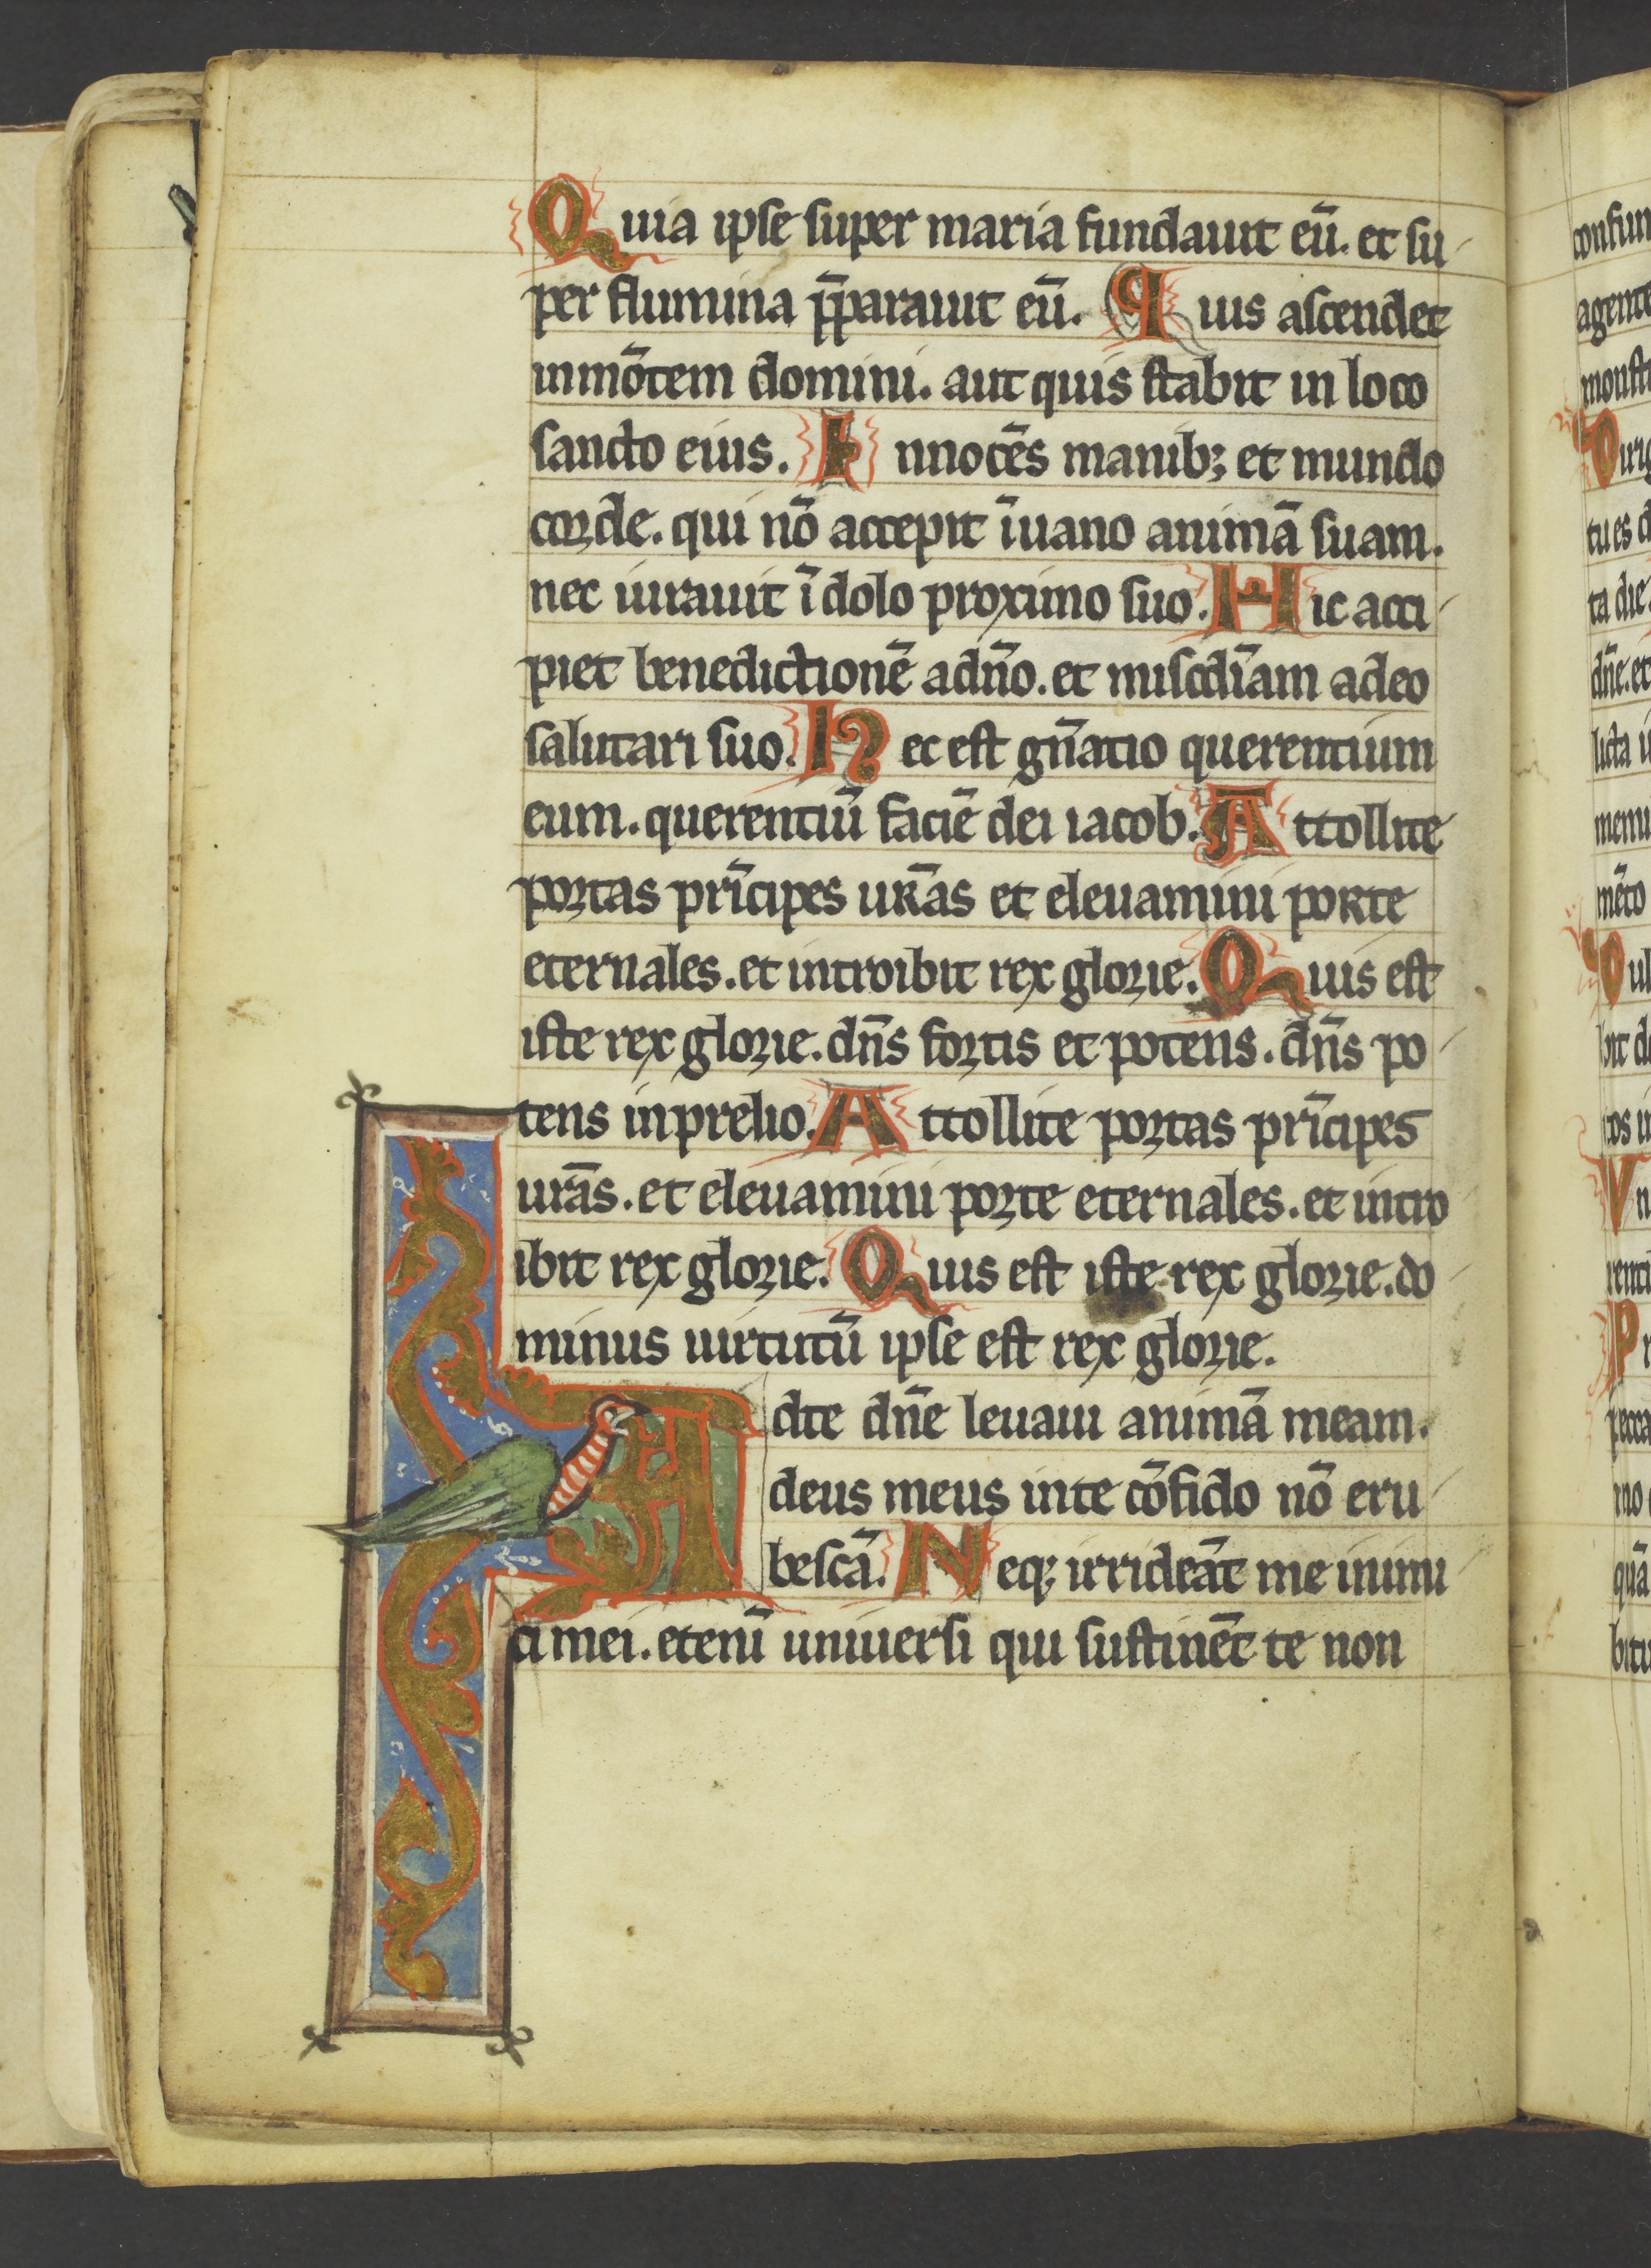 Quia ipse super maria fundauit eū. et su
per flumina p̄parauit eū. Quis ascendet
inmōtem domini. aut quis stabit in loco
sancto eius. Innocēs manib; et mundo
corde. qui nō accepit īuano animā suam.
nec iurauit ī dolo proximo suo. Hic acci
piet benedictionē adn̄o. et misc̄diam adeo
salutari suo. Hec est gn̄atio querentium
eum. querentiū faciē dei iacob. Attollite
portas prīcipes ur̄as et eleuamini porte
eternales. et introibit rex glorie. Quis est
iste rex glorie. dn̄s fortis et potens. dn̄s po
tens inprelio. Attollite portas prīcipes
ur̄as. et eleuamini porte eternales. et intro
ibit rex glorie. Quis est iste rex glorie. do
minus uirtutū ipse est rex glorie.
Adte dn̄e leuaui animā meam.
deus meus inte cōfido nō eru
bescā. Neq; irrideāt me inimi
ci mei. etenī uniuersi qui sustinēt te non
confun
agente
monst
Dirig
tu es d
ta die
dn̄e. et
licta i
memi
mēto
Dul
bit de
cos i
Vn
renti
Pr
pecca
mo
quā
bitu